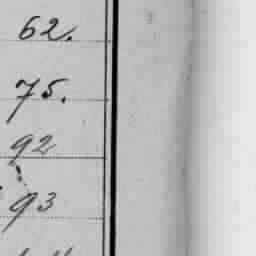 62.
75.
92
93